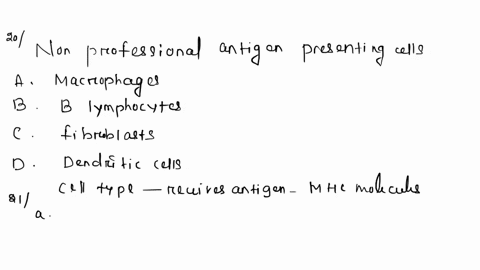 20/ Non professional antigen presenting cells
A. Macrophages
B. B lymphocytes
C. fibroblasts
D. Dendritic cells
21/ Cell type — receives antigen - MHC molecule
a.